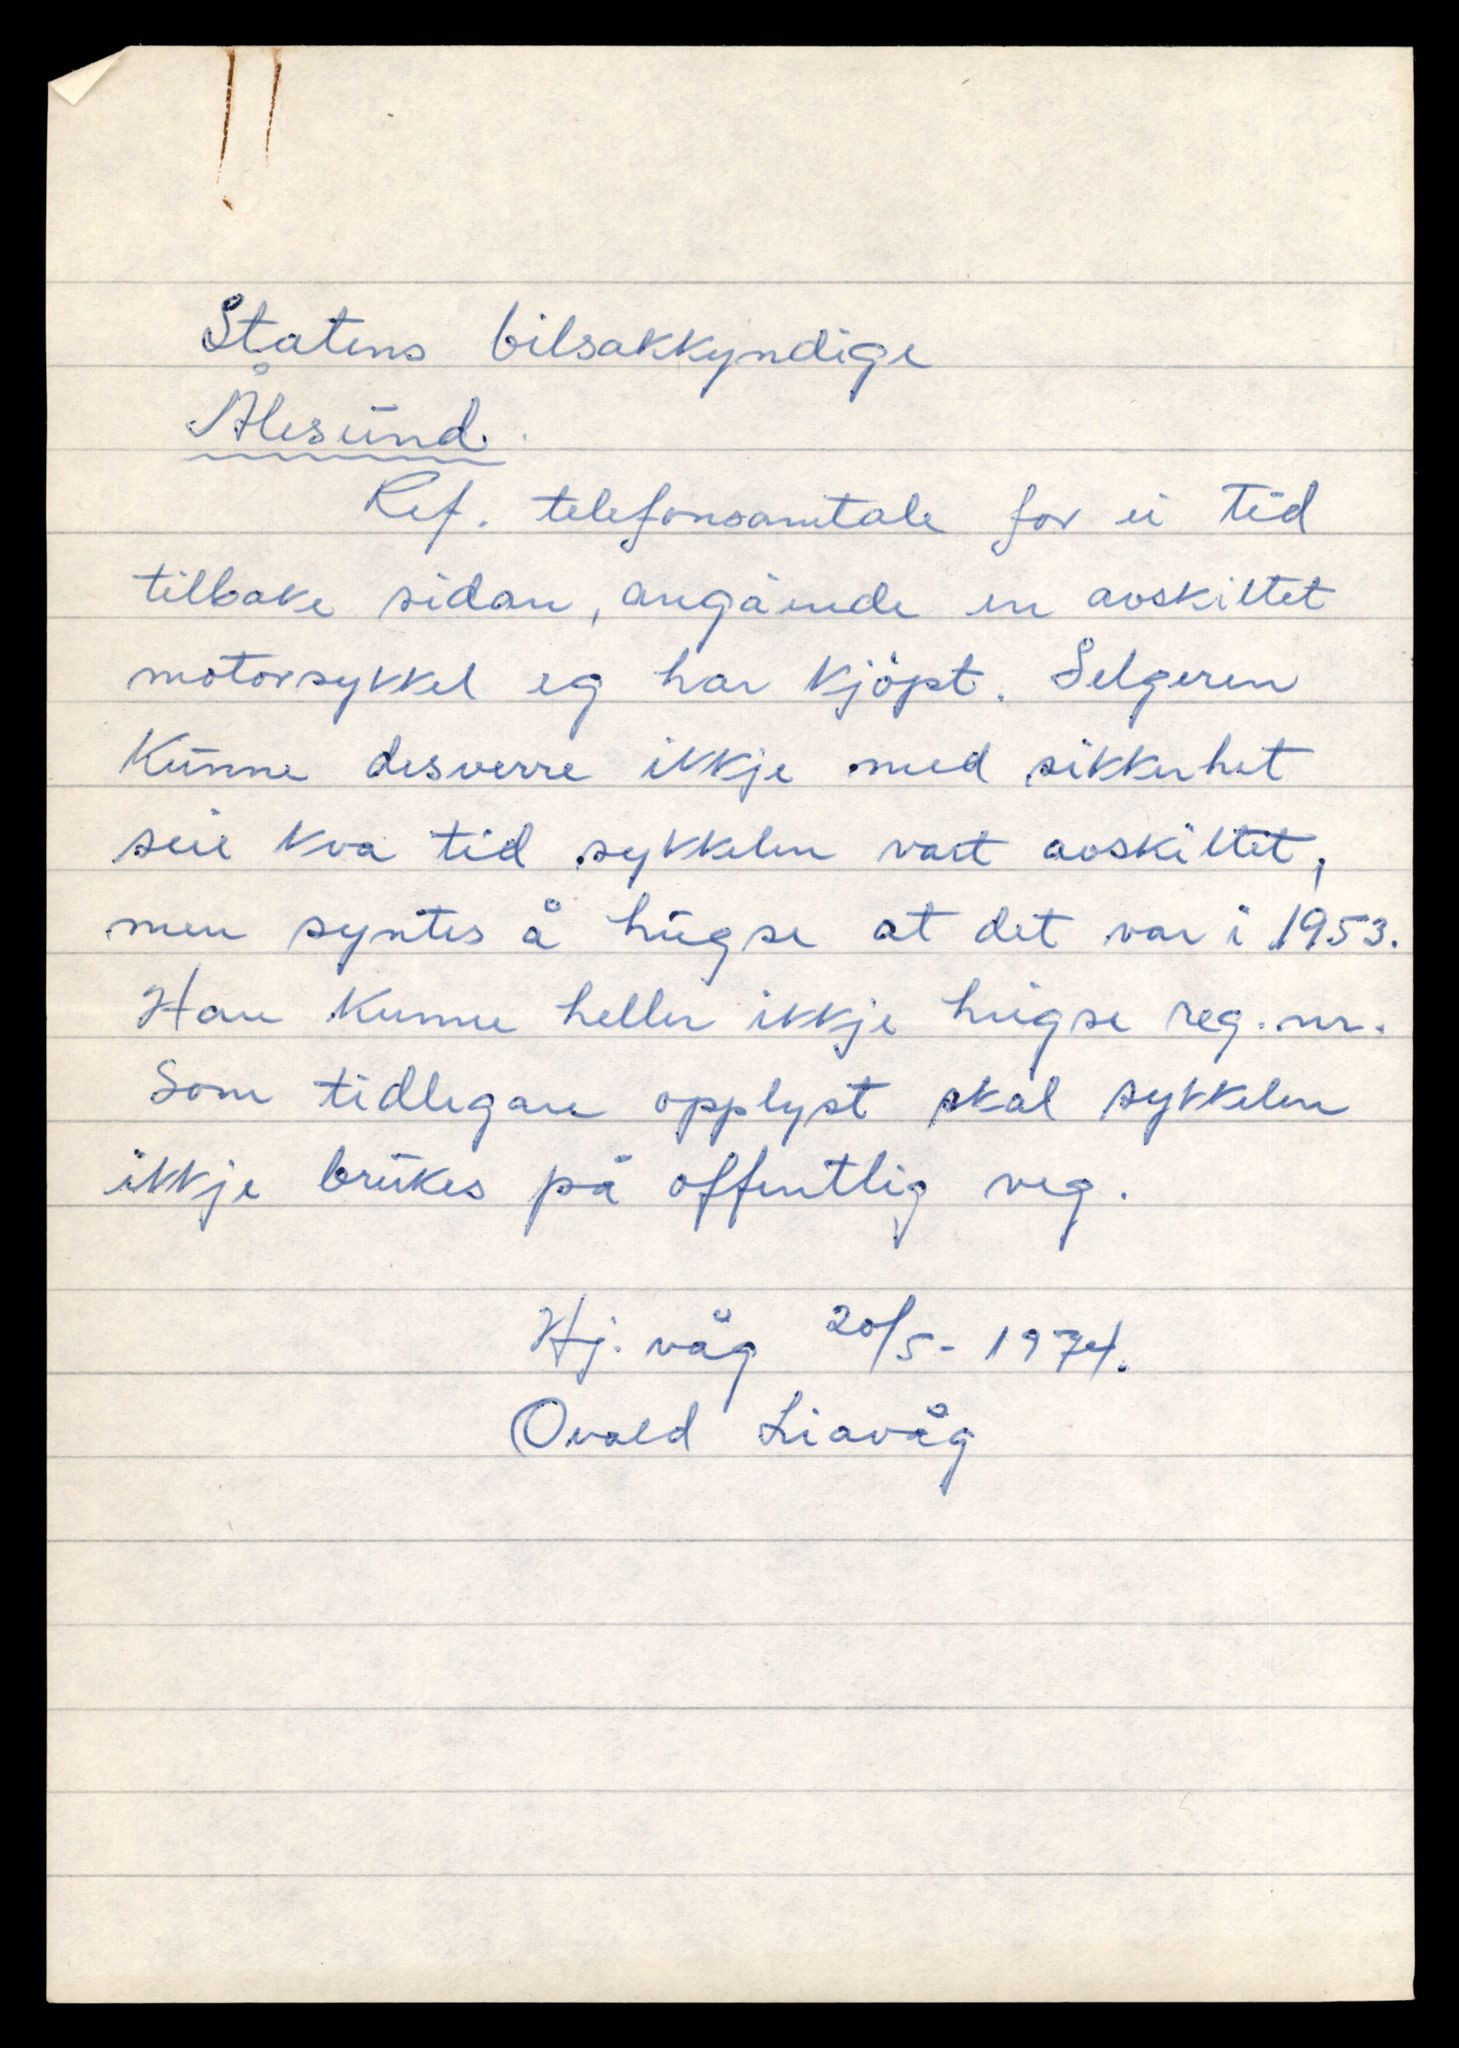 Statens bilsakkyndige
Ålesund.
Ref. telefonsamtale for ei tid
tilbake sidan, angående en avskiltet
motorsykkel eg har kjöpt. Selgeren
kunne desverre ikkje med sikkerhet
seie kva tid sykkelen vart avskiltet,
men syntes å hugse at det var i 1953.
Han kunne heller ikkje hugse reg.nr.
Som tidlegare opplyst skal sykkelen
ikkje brukes på offentlig veg.
Hj. våg 20/5- 1974.
Ovald Liavåg